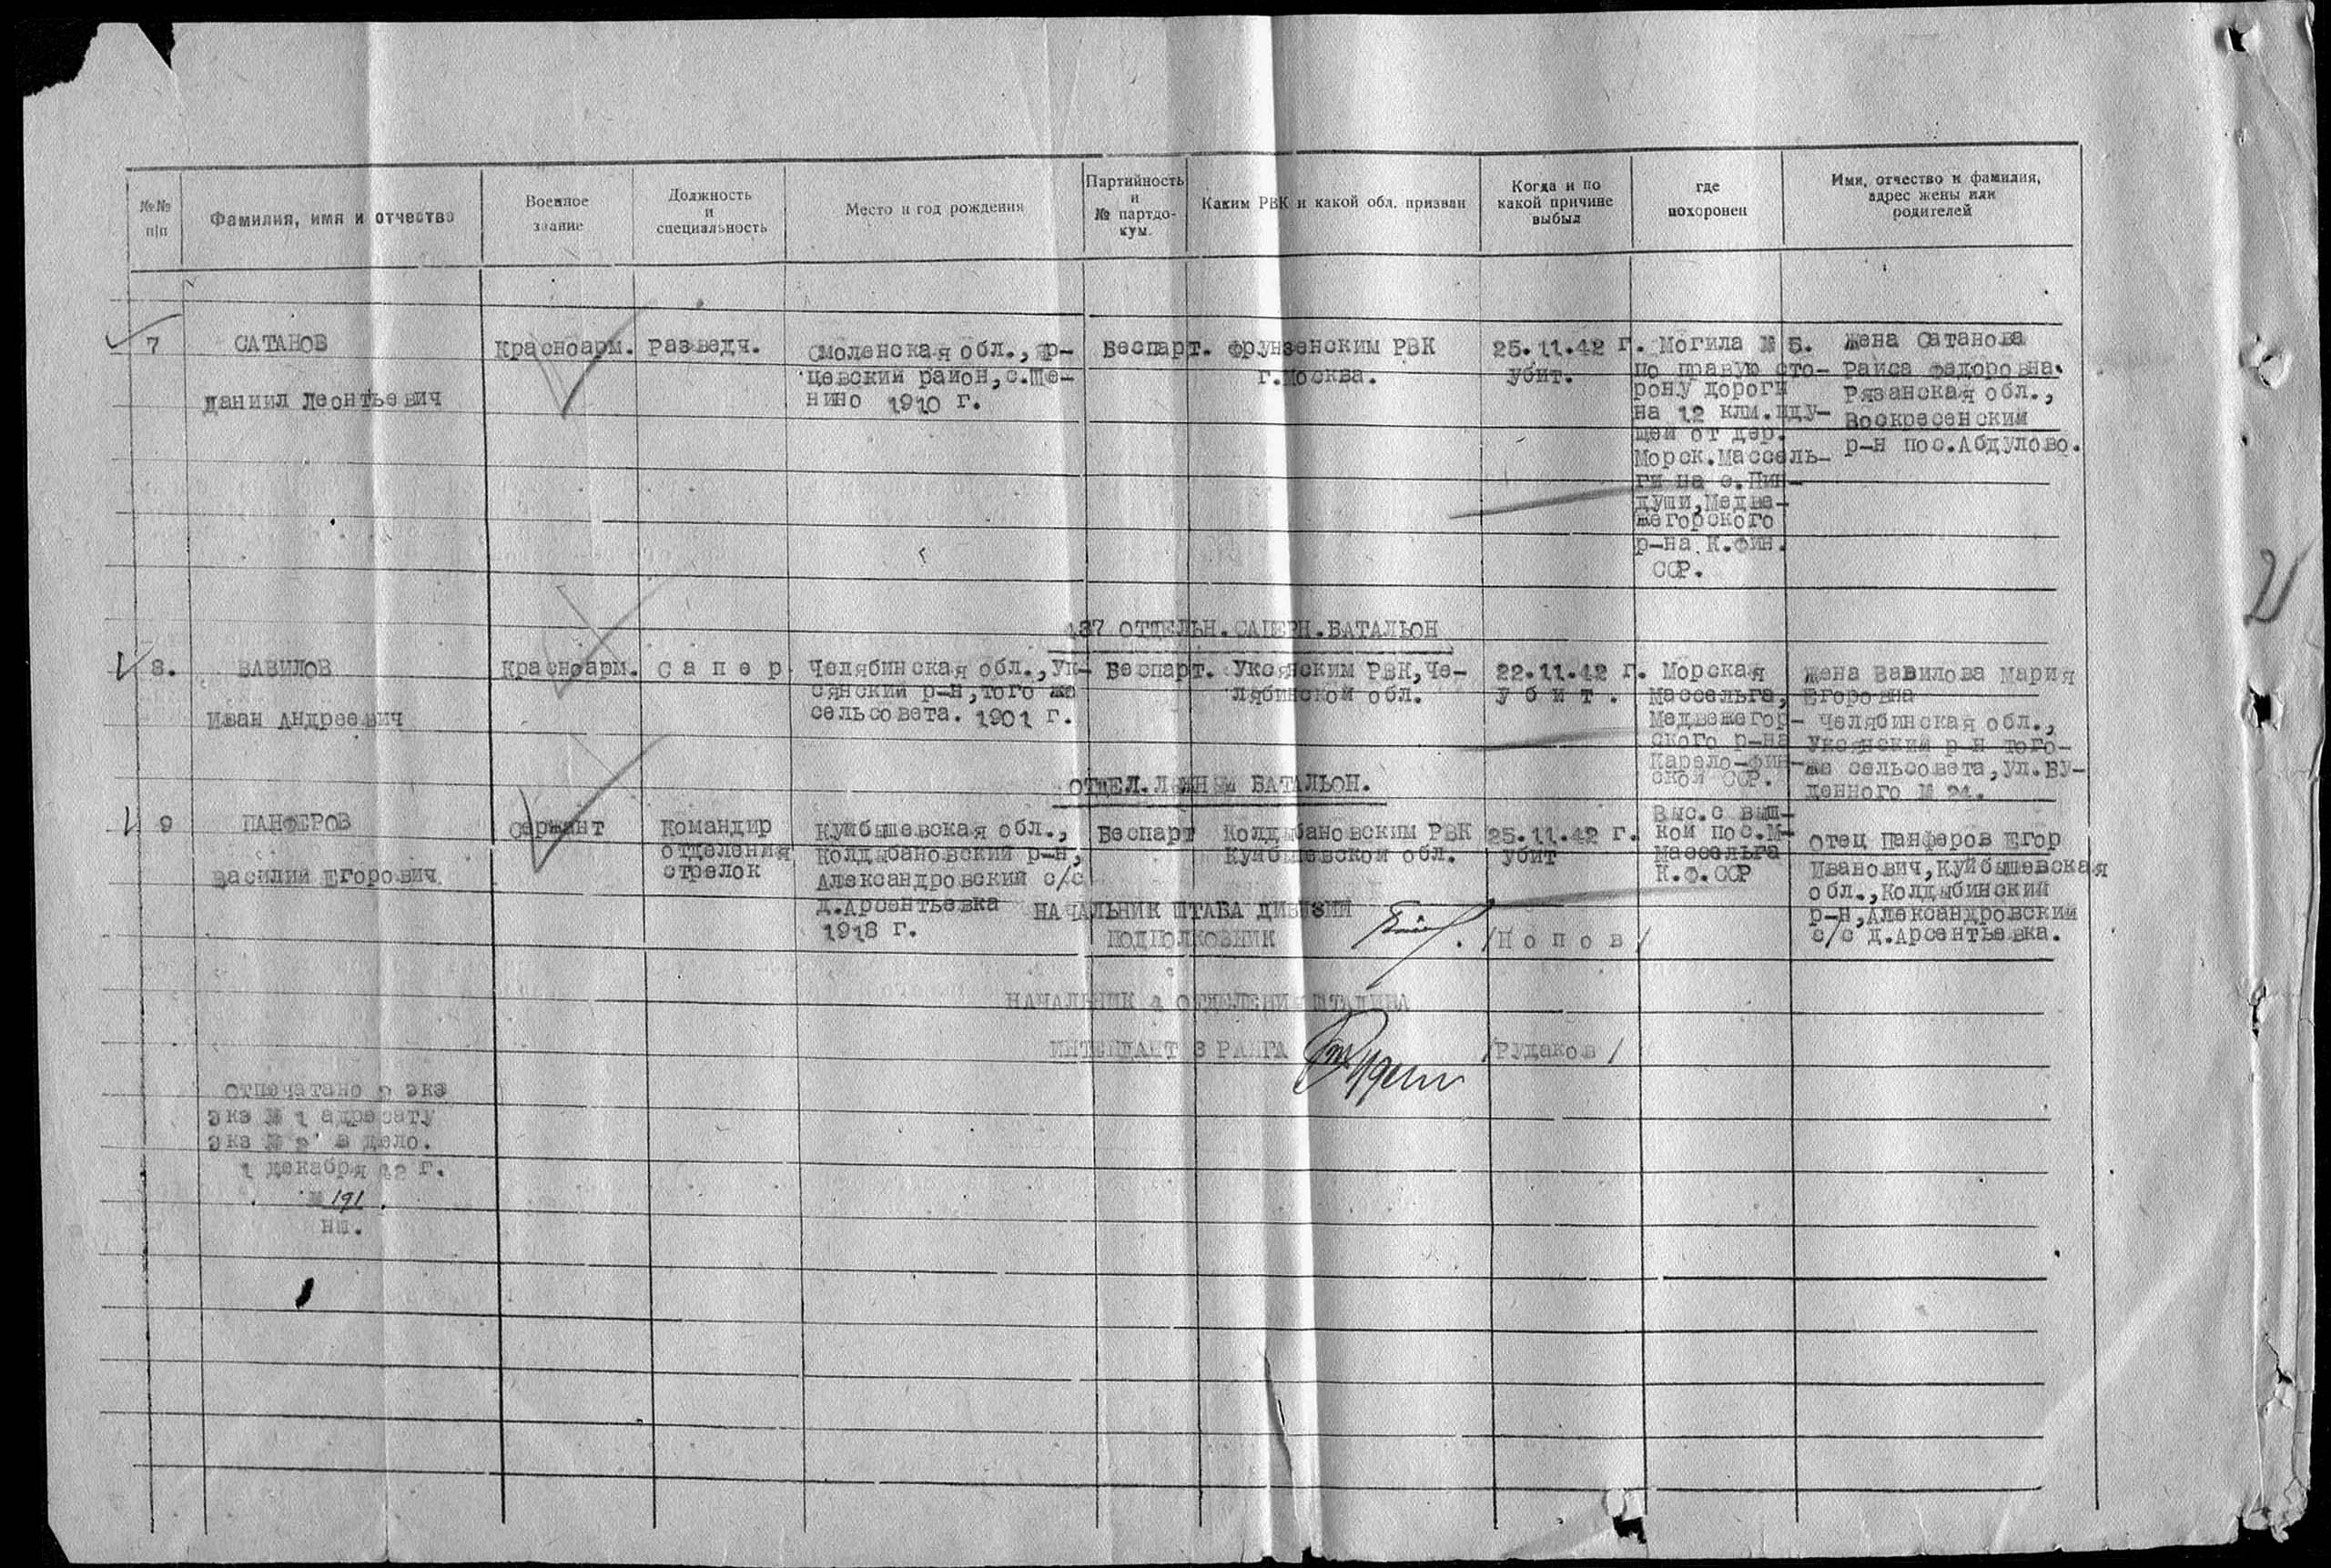 №№ п/п
Фамилия, имя и отчество
Военное звание
Должность и специальность
Место и год рождения
Партийность и № партдокум.
Каким РВК и какой обл. призван
Когда и по какой причине выбыл
где похоронен
Имя, отчество и фамилия, адрес жены или родителей
7
САТАНОВ
Даниил Леонтьевич
Красноарм.
Разведч.
Смоленская обл., Яр-
цевский район, с.Ше-
нино 1910 г.
Беспарт.
Фрунзенским РВК
г.Москва.
25.11.42 г.
убит.
Могила № 5.
по правую сто-
рону дороги
на 12 клм.иду-
щей от дер.
Морск.Массель-
ги на с.Пин-
души, Медве-
жегорского
р-на К.Фин.
ССР.
Жена Сатанова
Раиса Федоровна.
Рязанская обл.,
Воскресенским
р-н пос.Абдулово.
137 ОТДЕЛЬН.САПЕРН.БАТАЛЬОН
8.
ВАВИЛОВ
Иван Андреевич
Красноарм.
С а п е р
Челябинская обл., Ук-
сянский р-н, того же
сельсовета. 1901 г.
Беспарт.
Уксянским РВК, Че-
лябинской обл.
22.11.42 г.
у б и т .
Морская
Массельга,
Медвежегор-
ского р-на
Карело-Фин-
ской ССР.
Жена Вавилова Мария
Егоровна
Челябинская обл.,
Уксянский р-н того-
же сельсовета, ул.Бу-
денного № 21.
ОТДЕЛ. ЛЫЖНЫЙ БАТАЛЬОН.
9
ПАНФЕРОВ
Василий Егорович
Сержант
Командир
отделения
стрелок
Куйбышевская обл.,
Колдыбановский р-н,
Александровский с/с
д.Арсентьевка
1918 г.
Беспарт
Колдыбановским РВК
Куйбышевской обл.
25.11.42 г.
убит
Выс.с выш-
кой пос.М-
Массельга
К.Ф.ССР
Отец Панферов Егор
Иванович, Куйбышевская
обл., Колдыбинский
р-н, Александровский
с/с д.Арсентьевка.
НАЧАЛЬНИК ШТАБА ДИВИЗИИ
ПОДПОЛКОВНИК
/П о п о в/
НАЧАЛЬНИК 4 ОТДЕЛЕНИЯ ШТАДИВА
ИНТЕНДАНТ 3 РАНГА
/Рудаков/
Отпечатано 2 экз
экз № 1 адресату
экз № 2 в дело.
1 декабря 42 г.
№ 191.
нш.
21